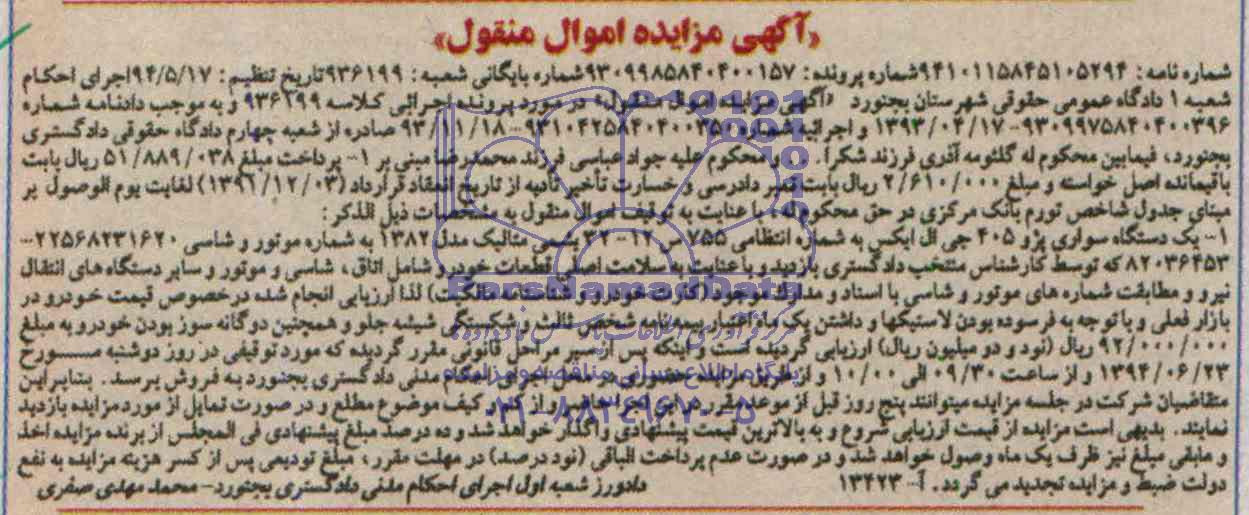 «آگهی مزایده اموال منقول»
شماره نامه: ۹۴۱۰۱۱۵۸۴۵۱۰۵۲۹۴شماره پرونده: ۹۳۰۹۹۸۵۸۴۰۴۰۰۱۵۷شماره بایگانی شعبه: ۹۳۶۱۹۹تاریخ تنظیم: ۹۴/۵/۱۷اجرای احکام
شعبه ۱ دادگاه عمومی حقوقی شهرستان بجنورد «آگهی مزایده اموال منقول» در مورد پرونده اجرائی کلاسه ۹۳۶۱۹۹ و به موجب دادنامه شماره
۹۳۰۹۹۷۵۸۴۰۴۰۰۳۹۶-۱۳۹۳/۰۴/۱۷ و اجرائیه شماره ۹۳۱۰۴۲۵۸۴۰۴۰۰۳۵۰-۹۳/۱۱/۱۸ صادره از شعبه چهارم دادگاه حقوقی دادگستری
بجنورد، فیمابین محکوم له گلثومه آذری فرزند شکرا... و محکوم علیه جواد عباسی فرزند محمدرضا مبنی بر ۱- پرداخت مبلغ ۵۱/۸۸۹/۰۳۸ ریال بابت
باقیمانده اصل خواسته و مبلغ ۲/۶۱۰/۰۰۰ ریال بابت تمبر دادرسی و خسارت تأخیر تأدیه از تاریخ انعقاد قرارداد (۱۳۹۱/۱۲/۰۳) لغایت یوم الوصول بر
مبنای جدول شاخص تورم بانک مرکزی در حق محکوم له، با عنایت به توقیف اموال منقول به مشخصات ذیل الذکر:
۱- یک دستگاه سواری پژو ۴۰۵ جی ال ایکس به شماره انتظامی ۷۵۵ س ۱۲-۳۲ یشمی متالیک مدل ۱۳۸۲ به شماره موتور و شاسی ۲۲۵۶۸۲۳۱۶۲۰-
۸۲۰۳۶۴۵۳ که توسط کارشناس منتخب دادگستری بازدید و با عنایت به سلامت اصلی قطعات خودرو شامل اتاق، شاسی و موتور و سایر دستگاه های انتقال
نیرو و مطابقت شماره های موتور و شاسی با اسناد و مدارک موجود (کارت خودرو و شناسنامه مالکیت) لذا ارزیابی انجام شده درخصوص قیمت خودرو در
بازار فعلی و با توجه به فرسوده بودن لاستیکها و داشتن یک ماه اعتبار بیمه نامه شخص ثالث و شکستگی شیشه جلو و همچنین دوگانه سوز بودن خودرو به مبلغ
۹۲/۰۰۰/۰۰۰ ریال (نود و دو میلیون ریال) ارزیابی گردیده است و اینکه پس از سیر مراحل قانونی مقرر گردیده که مورد توقیفی در روز دوشنبه مـــورخ
۱۳۹۴/۰۶/۲۳ و از ساعت ۰۹/۳۰ الی ۱۰/۰۰ و از طریق مزایده حضوری در محل اجرای احکام مدنی دادگستری بجنورد به فروش برسد. بنابراین
متقاضیان شرکت در جلسه مزایده میتوانند پنج روز قبل از موعد مقرر در این اجرا حاضر و از کم و کیف موضوع مطلع و در صورت تمایل از مورد مزایده بازدید
نمایند. بدیهی است مزایده از قیمت ارزیابی شروع و به بالاترین قیمت پیشنهادی واگذار خواهد شد و ده درصد مبلغ پیشنهادی فی المجلس از برنده مزایده اخذ
و مابقی مبلغ نیز ظرف یک ماه وصول خواهد شد و در صورت عدم پرداخت الباقی (نود درصد) در مهلت مقرر، مبلغ تودیعی پس از کسر هزینه مزایده به نفع
دولت ضبط و مزایده تجدید می گردد. آ-۱۳۴۲۳
دادورز شعبه اول اجرای احکام مدنی دادگستری بجنورد- محمد مهدی صفری
ParsNamadData
پایگاه اطلاع رسانی مناقصه و مزایده
۰۲۱-۸۸۳۴۹۶۷۰-۵